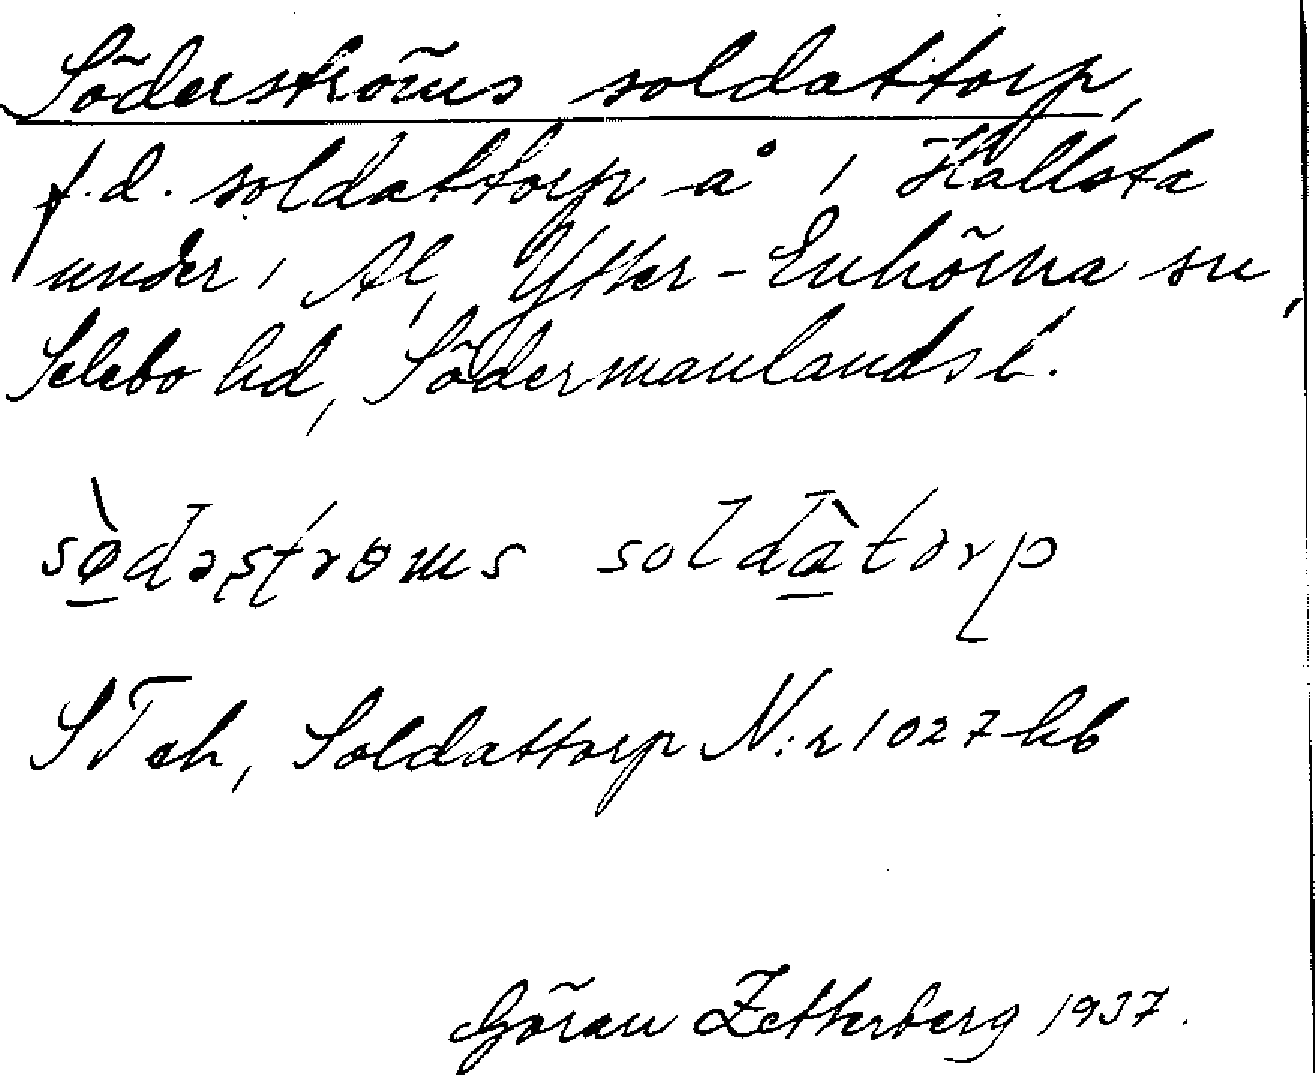 Söderströms soldattorp,
f.d. soldattorp å 1 Hallsta
under 1 Al, Ytter-Enhörna sn,
Selebo hd, Södermanlands l.
sødəʂʈrøms soldatorp
STeh, Soldattorp N:r 1027 hb
Göran Zetterberg 1937.